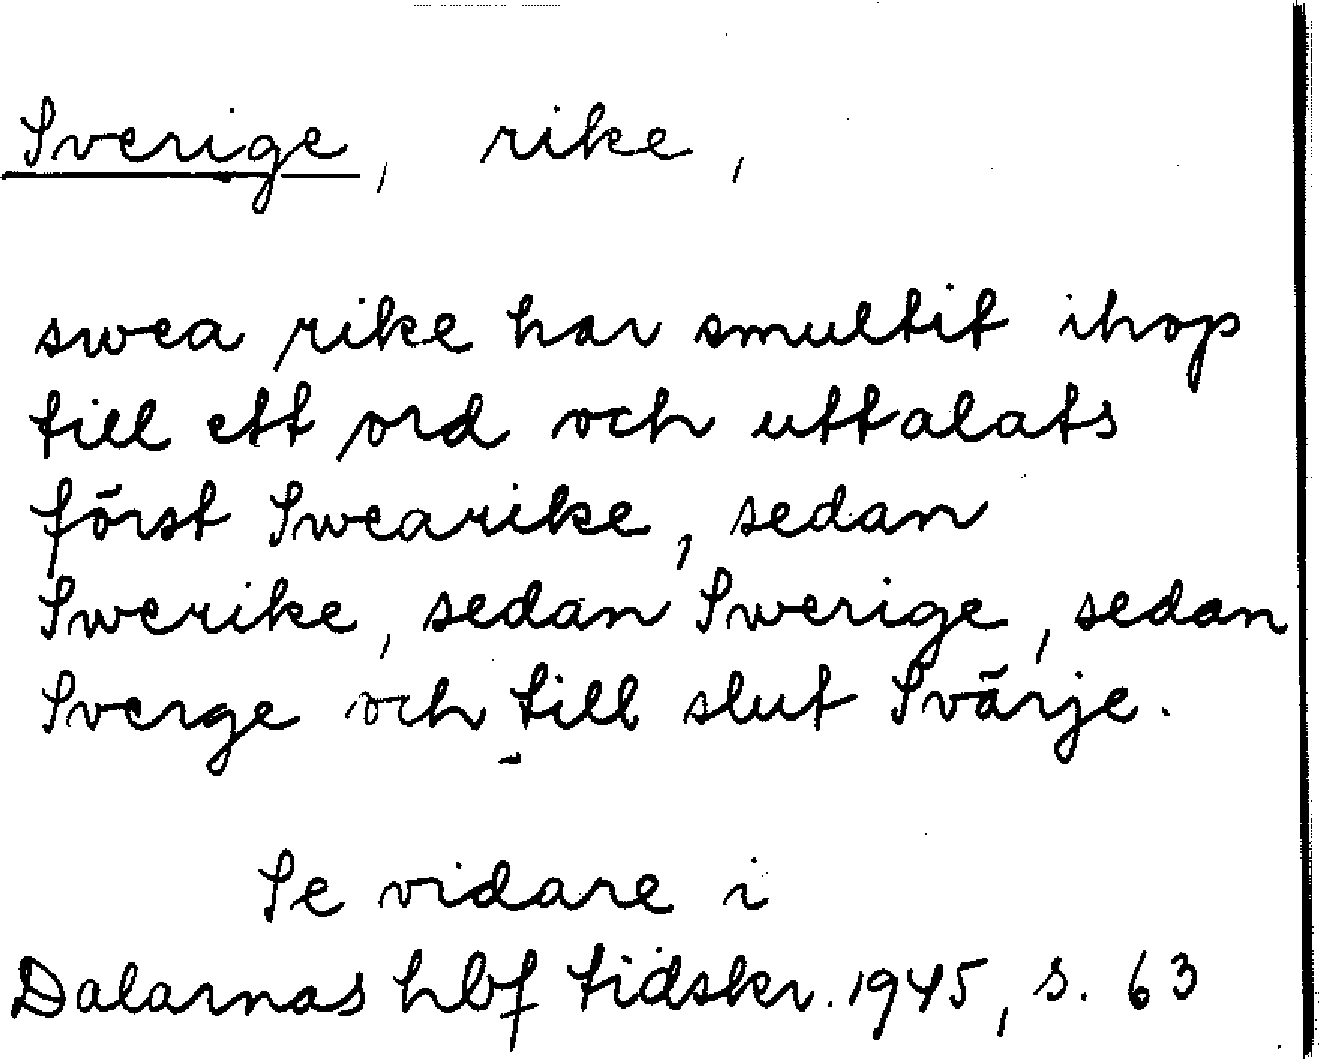 Sverige, rike,
swea rike har smultit ihop
till ett ord och uttalats
först Swearike, sedan
Swerike, sedan Swerige, sedan
Sverge och till slut Svärje.
Se vidare i
Dalarnas hbf tidskr. 1945, s. 63